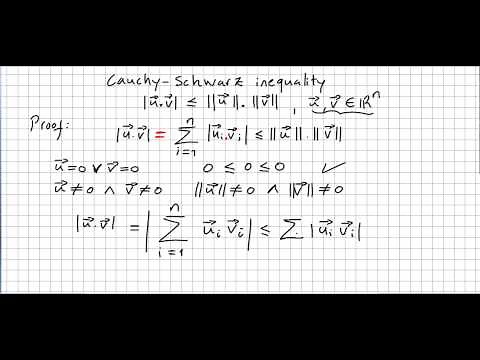 Cauchy-Schwarz inequality
|u⃗.v⃗| ≤ ||u⃗||.||v⃗|| , u⃗,v⃗ ∈ ℝⁿ
Proof:
|u⃗.v⃗| = ∑ᵢ₌₁ⁿ |u⃗ᵢ.v⃗ᵢ| ≤ ||u⃗||.||v⃗||
u⃗=0 ∨ v⃗=0 0 ≤ 0 ≤ 0 ✓
u⃗≠0 ∧ v⃗≠0 ||u⃗||≠0 ∧ ||v⃗||≠0
|u⃗.v⃗| = |∑ᵢ₌₁ⁿ u⃗ᵢ v⃗ᵢ| ≤ ∑. |u⃗ᵢ v⃗ᵢ|